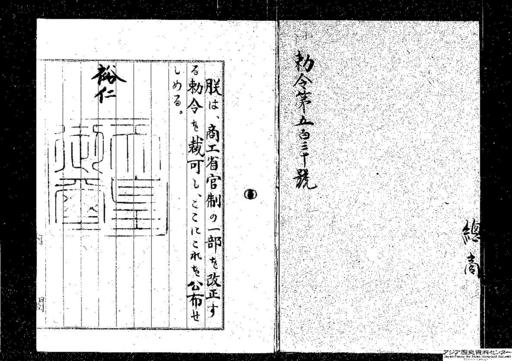 勅令第五百三十號
總商
朕は、商工省官制の一部を改正す
る勅令を裁可し、ここにこれを公布せ
しめる。
裕仁
天皇
御璽
アジア歴史資料センター